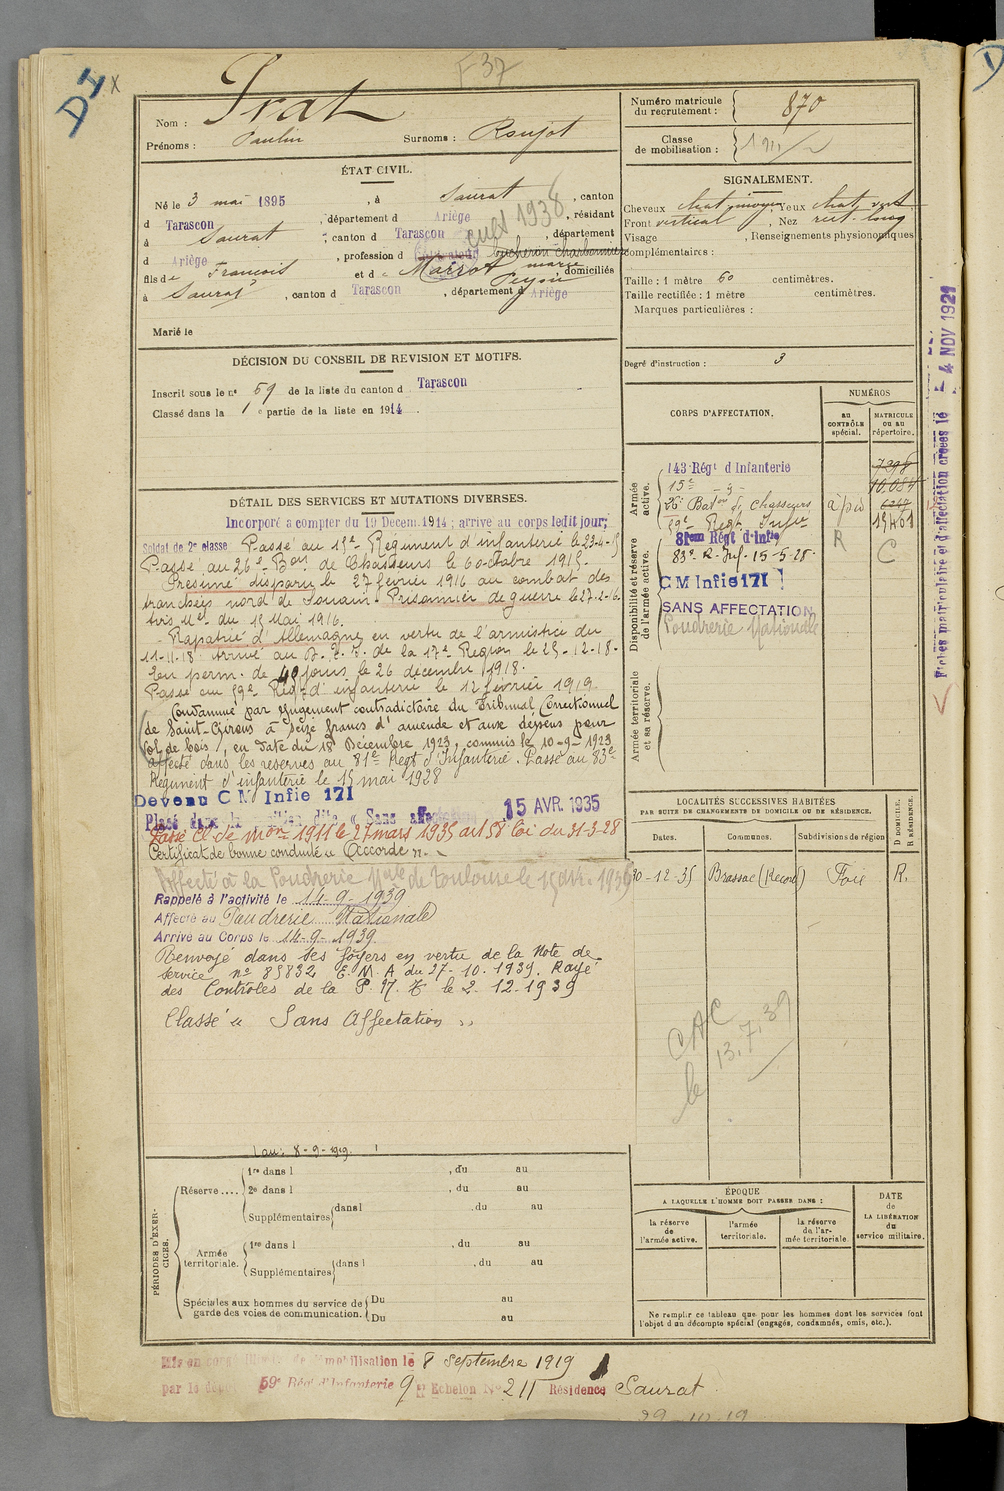 DI x
F 37
Nom : Prat
Prénoms : Paulin Surnoms : Roujot
ÉTAT CIVIL.
Né le 3 mai 1895, à Saurat, canton
d Tarascon, département d Ariège, résidant
à Saurat, canton d Tarascon, département
d Ariège, profession d bucheron charbonnier
fils de François et de Marrot marie, domiciliés
à Saurat, canton d Tarascon, département d Ariège
1938
Marié le
DÉCISION DU CONSEIL DE REVISION ET MOTIFS.
Inscrit sous le n° 59 de la liste du canton d Tarascon
Classé dans la 1e partie de la liste en 1914.
DÉTAIL DES SERVICES ET MUTATIONS DIVERSES.
Incorporé a compter du 19 Decem. 1914; arrive au corps ledit jour;
Soldat de 2e classe Passé au 15e Régiment d'infanterie le 23-4-15
Passé au 26e Bon de Chasseurs le 6 Octobre 1915.
Présumé disparu le 27 février 1916 au combat des
tranchées nord de Souain. Prisonnier de guerre le 27-2-16.
Avis Mel du 15 Mai 1916.
Rapatrié d'Allemagne en vertu de l'armistice du
11-11-18. Arrivé au de la 17e Région le 25-12-18.
En perm. de 40 jours le 26 décembre 1918.
Passé au 59e Régt d'infanterie le 12 février 1919.
Condamné par jugement contradictoire du Tribunal Correctionnel
de Saint-Girons à seize francs d'amende et aux dépens pour
Vol de bois, en date du 18 Décembre 1923, commis le 10-9-1923
Affecté dans les réserves au 81e Régt d'Infanterie. Passé au 83e
Régiment d'infanterie le 15 mai 1928
Devenu C M Infie 171
Placé dans la position dite « Sans affectation 15 AVR. 1935
Passé Cl de mon 1911 le 27 mars 1935 art 58 loi du 31-3-28
Certificat de bonne conduite « Accordé »
Affecté à la Poudrerie Nale de Toulouse le 15 1936
Rappelé à l'activité le 14-9-1939
Affecté au Poudrerie Nationale
Arrivé au Corps le 14-9-1939
Renvoyé dans ses foyers en vertu de la Note de
service n° 85832 E. M. A du 27-10-1939. Rayé
des Contrôles de la P. N. T. le 2-12-1939
Classé « Sans Affectation »
au : 8-9-1919.
PÉRIODES D'EXERCICES.
Réserve .... 1re dans l , du au
2e dans l , du au
Supplémentaires dans l , du au
Armée territoriale. 1re dans l , du au
Supplémentaires dans l , du au
Spéciales aux hommes du service de garde des voies de communication. Du au
Du au
Numéro matricule du recrutement : 870
Classe de mobilisation :
SIGNALEMENT.
Cheveux chat moyen, Yeux chat vert
Front vertical, Nez rect. long
Visage , Renseignements physionomiques
complémentaires :
Taille : 1 mètre 60 centimètres.
Taille rectifiée : 1 mètre centimètres.
Marques particulières :
Degré d'instruction : 3
CORPS D'AFFECTATION.
NUMÉROS
au CONTRÔLE spécial.
MATRICULE ou au répertoire.
Armée active.
143 Régt d'Infanterie 7298
15e - d - 10.084
26e Baton de Chasseurs à pied
59e Regt Infie 15461
Disponibilité et réserve de l'armée active.
81em Régt d'Infie R
83e R. Inf. 15-5-28. C
C M Infie 171
SANS AFFECTATION
Poudrerie Nationale
Armée territoriale et sa réserve.
LOCALITÉS SUCCESSIVES HABITÉES
PAR SUITE DE CHANGEMENTS DE DOMICILE OU DE RÉSIDENCE.
Dates. Communes. Subdivisions de région D DOMICILE. R RÉSIDENCE.
30-12-35 Brassac Foix R.
CAC
le 13.7.39
ÉPOQUE
A LAQUELLE L'HOMME DOIT PASSER DANS :
la réserve de l'armée active.
l'armée territoriale.
la réserve de l'armée territoriale.
DATE de LA LIBÉRATION du service militaire.
Ne remplir ce tableau que pour les hommes dont les services font
l'objet d'un décompte spécial (engagés, condamnés, omis, etc.).
Fiches matriculaire et d'affectation créées le - 4 NOV 1921
Mis en congé de démobilisation le 8 Septembre 1919
par le dépôt 59e Régt d'Infanterie 9 e Echelon N° 211 Résidence Saurat
29-10-19